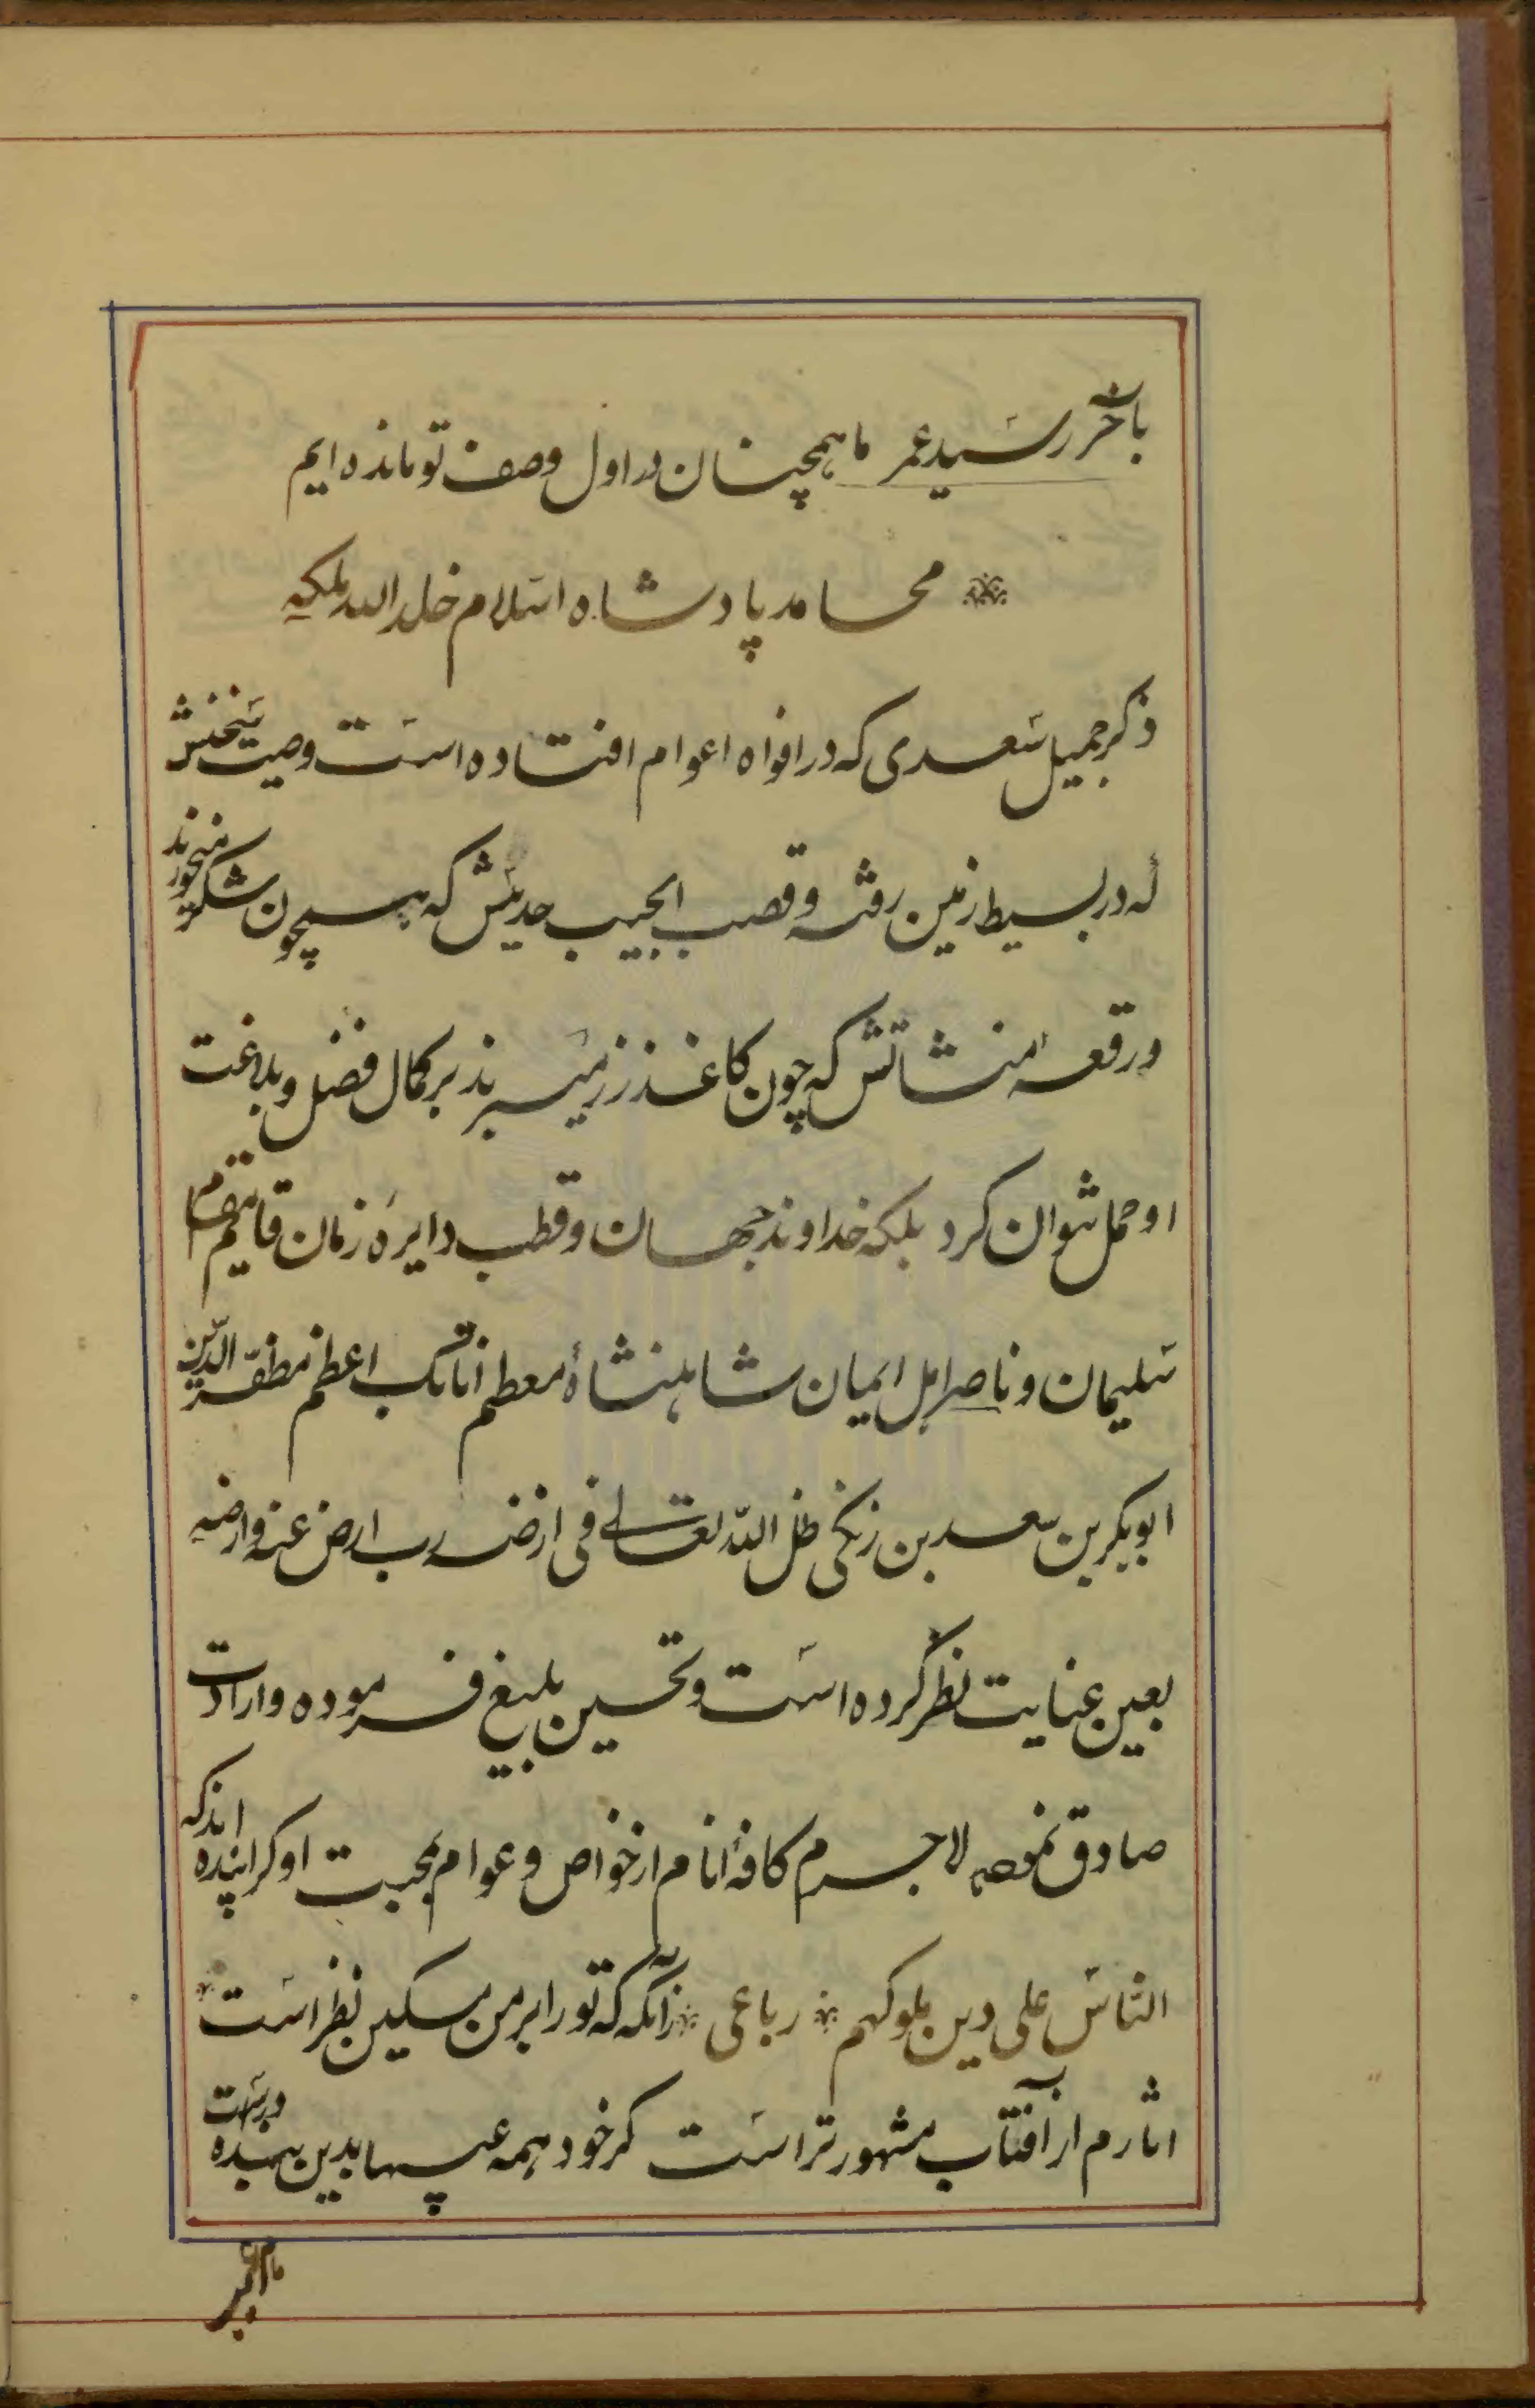 بآخر رسید عمر ما همچنان در اول وصف تو مانده ایم
محامد پادشاه اسلام خلد الله ملکه
ذکر جمیل سعدی که در افواه اعوام افتاده است وصیت سخنش
که در بسیط زمین رفته و قصب الجیب حدیثش که همچون شکر میخورند
ورقعه منشاتش که چون کاغذ زر میبرند بر کمال فضل و بلاغت
او حمل نتوان کرد بلکه خداوند جهان و قطب دایرهٔ زمان قایم مقام
سلیمان و ناصر اهل ایمان شاهنشاه معظم اتابک اعظم مظفر الدین
ابوبکر بن سعد بن زنگی ظل الله تعالی فی ارضه رب ارض عنه وارضه
بعین عنایت نظر کرده است و تحسین بلیغ فرموده و ارادت
صادق نموده لاجرم کافهٔ انام از خواص و عوام بمحبت او گراینده اند که
الناس علی دین ملوکهم رباعی زانگه که تو را بر من مسکین نظر است
اثارم از آفتاب مشهورتر است گر خود همه عیبها بدین بنده درست